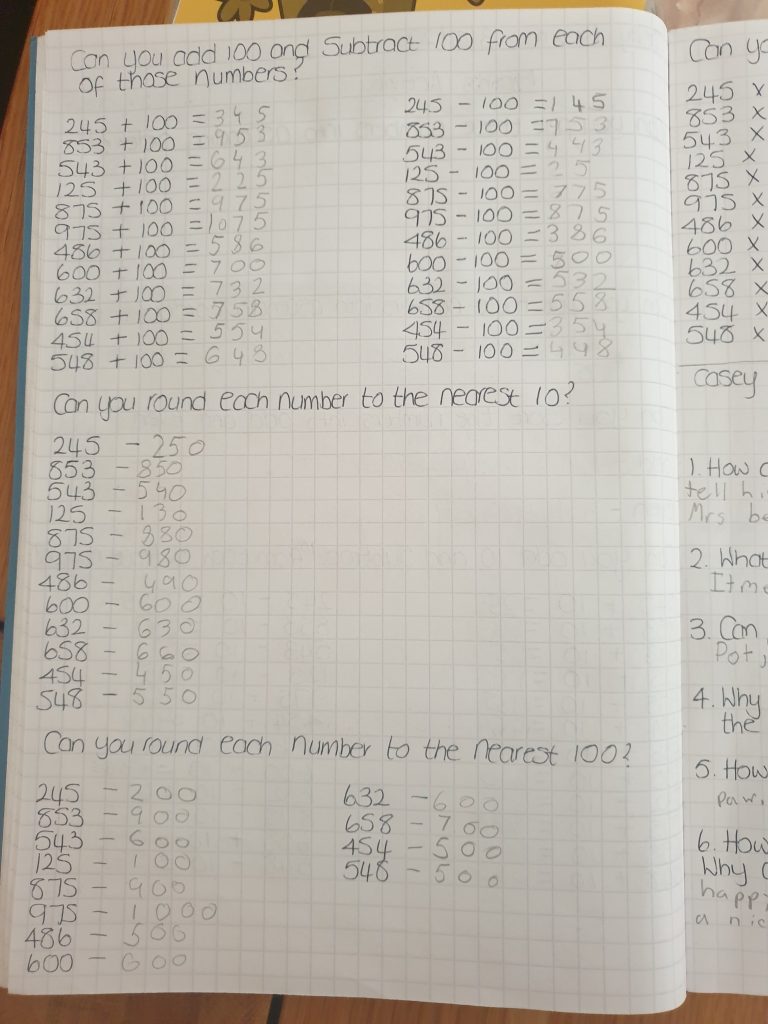 Can you add 100 and Subtract 100 from each
of those numbers?
245 + 100 = 345
853 + 100 = 953
543 + 100 = 643
125 + 100 = 225
875 + 100 = 975
975 + 100 = 1075
486 + 100 = 586
600 + 100 = 700
632 + 100 = 732
658 + 100 = 758
454 + 100 = 554
548 + 100 = 648
245 - 100 = 145
853 - 100 = 753
543 - 100 = 443
125 - 100 = 25
875 - 100 = 775
975 - 100 = 875
486 - 100 = 386
600 - 100 = 500
632 - 100 = 532
658 - 100 = 558
454 - 100 = 354
548 - 100 = 448
Can you round each number to the nearest 10?
245 - 250
853 - 850
543 - 540
125 - 130
875 - 880
975 - 980
486 - 490
600 - 600
632 - 630
658 - 660
454 - 450
548 - 550
Can you round each number to the nearest 100?
245 - 200
853 - 900
543 - 600
125 - 100
875 - 900
975 - 1000
486 - 500
600 - 600
632 - 600
658 - 700
454 - 500
548 - 500
Can
245 x
853 x
543 x
125 x
875 x
975 x
486 x
600 x
632 x
658 x
454 x
548 x
Casey
1. How
tell
Mrs
2. What
3. Can
Pot
4. Why
the
5. How
paw
6. How
Why
happy
a